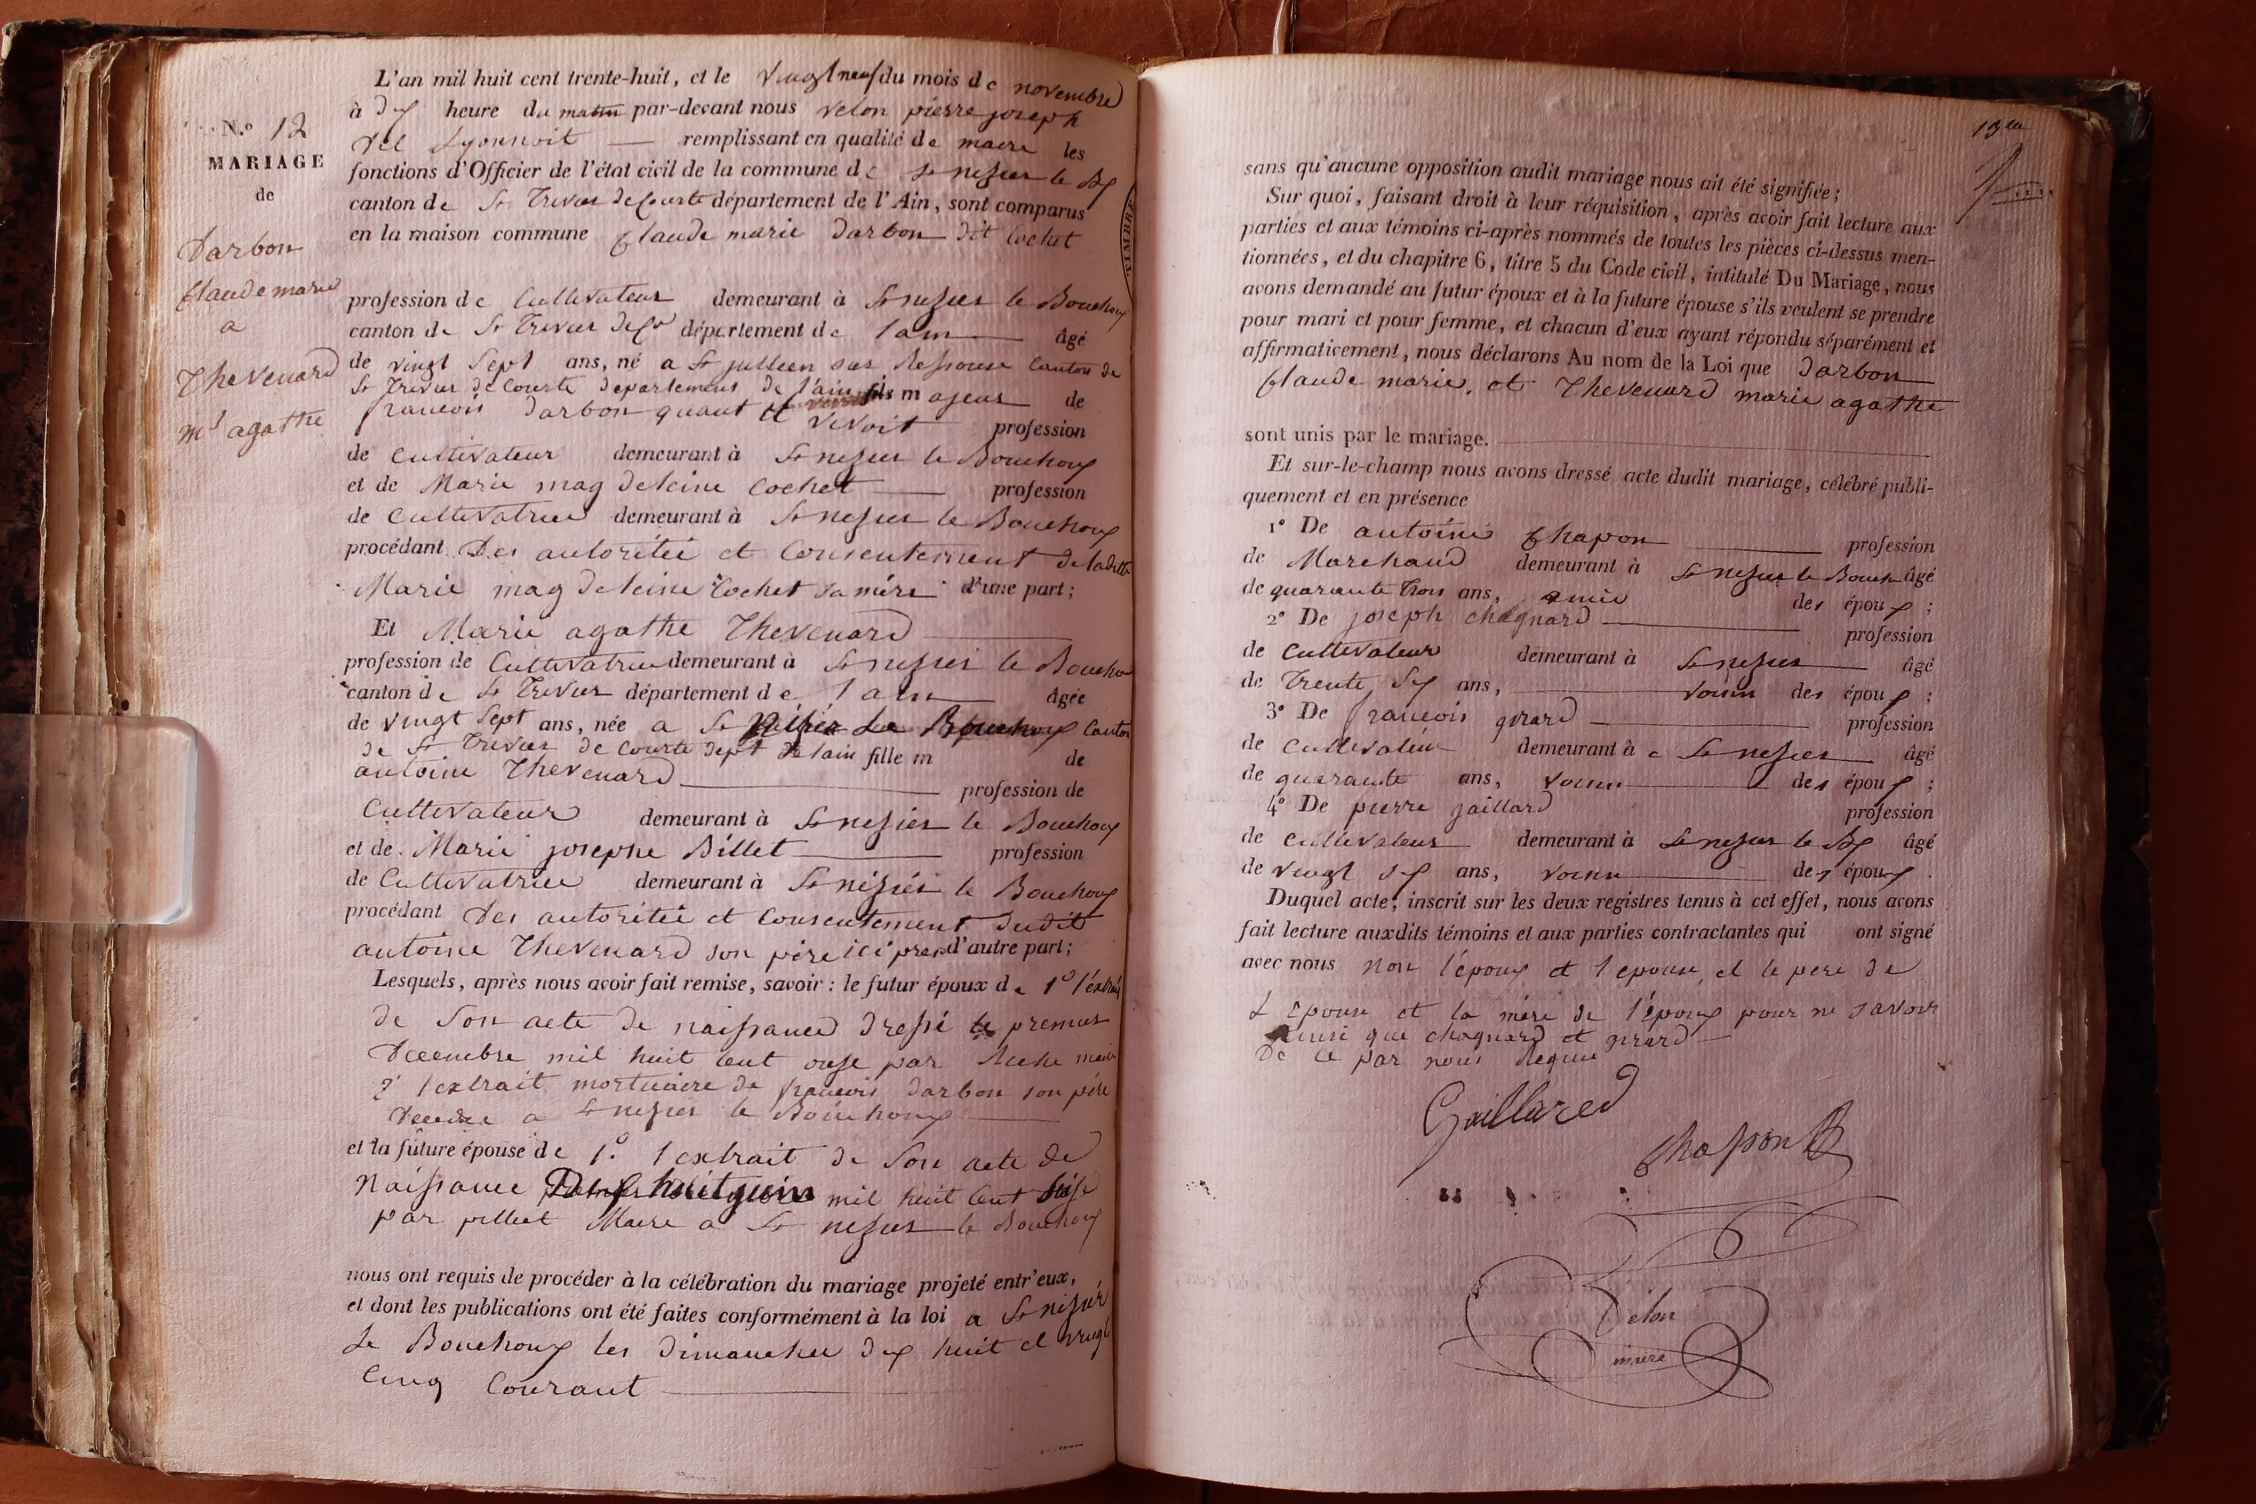 N.º 12
MARIAGE
de
Darbon
Claude marie
a
Thevenard
mie agathe
L'an mil huit cent trente-huit, et le vingt neuf du mois de novembre
à dix heure du matin par-devant nous velon pierre joseph
dit Lyonnoit remplissant en qualité de maire les
fonctions d'Officier de l'état civil de la commune de St nizier le Bx
canton de St Trivier de Courte département de l'Ain, sont comparus
en la maison commune Claude marie darbon dit Cochet
profession de Cultivateur demeurant à St nizier le Bouchoux
canton de St Trivier de Cte département de l ain âgé
de vingt Sept ans, né a St jullien sur Ressouse Canton de
St Trivier de Courte departement de l'ain fils majeur de
francois darbon quant il vivoit profession
de Cultivateur demeurant à St nizier le Bouchoux
et de Marie magdeleine Cochet profession
de Cultivatrice demeurant à St nizier le Bouchoux
procédant Des autoritée et Consentement de ladite
Marie magdeleine Cochet sa mére d'une part;
Et Marie agathe Thevenard
profession de Cultivatrice demeurant à St nizier le Boucho
canton de St Trivier département de l ain âgée
de vingt Sept ans, née a St Nizier Le Bouchoux Canton
de St Trivier de Courte dept de lain fille m de
antoine Thevenard profession de
Cultivateur demeurant à St nizier le Bouchoux
et de Marie josephe Billet profession
de Cultivatrice demeurant à St nizier le Bouchoux
procédant Des autoritée et Consentement dudit
antoine Thevenard son pére ici pres d'autre part;
Lesquels, après nous avoir fait remise, savoir: le futur époux de 1º l'extrait
de Son acte de naissance dressé le premier
Decembre mil huit Cent onse par maire
2º l extrait mortuaire de francois darbon son pére
Decede a St nizier le Bouchoux
et la future épouse de 1.º l extrait de Son acte de
Naissance Dix huit juin mil huit Cent
par pillet Maire a St nizier le Bouchoux
nous ont requis de procéder à la célébration du mariage projeté entr'eux,
et dont les publications ont été faites conformément à la loi a St nizier
Le Bouchoux les dimanches dix huit et vingt
Cinq Courant
TIMBRE
sans qu'aucune opposition audit mariage nous ait été signifiée;
Sur quoi, faisant droit à leur réquisition, après avoir fait lecture aux
parties et aux témoins ci-après nommés de toutes les pièces ci-dessus men-
tionnées, et du chapitre 6, titre 5 du Code civil, intitulé Du Mariage, nous
avons demandé au futur époux et à la future épouse s'ils veulent se prendre
pour mari et pour femme, et chacun d'eux ayant répondu séparément et
affirmativement, nous déclarons Au nom de la Loi que darbon
Claude marie. et Thevenard marie agathe
sont unis par le mariage.
Et sur-le-champ nous avons dressé acte dudit mariage, célébré publi-
quement et en présence
1º De antoine Chapon profession
de Marchand demeurant à St nizier le Bouch âgé
de quarante trois ans, amie des époux;
2º De joseph chagnard profession
de Cultivateur demeurant à St nizier âgé
de Trente Six ans, voisin des époux;
3º De francois girard profession
de Cultivateur demeurant à St nizier âgé
de quarante ans, voisin des époux;
4º De pierre gaillard profession
de Cultivateur demeurant à St nizier le Bx âgé
de vingt Six ans, voisin des époux.
Duquel acte, inscrit sur les deux registres tenus à cet effet, nous avons
fait lecture auxdits témoins et aux parties contractantes qui ont signé
avec nous Non l'époux et l epouse et le pere de
L Epouse et la mére de l'époux pour ne savoir
ainsi que chagnard et girard
De ce par nous Requis
Gaillared
Chapon
velon
maire